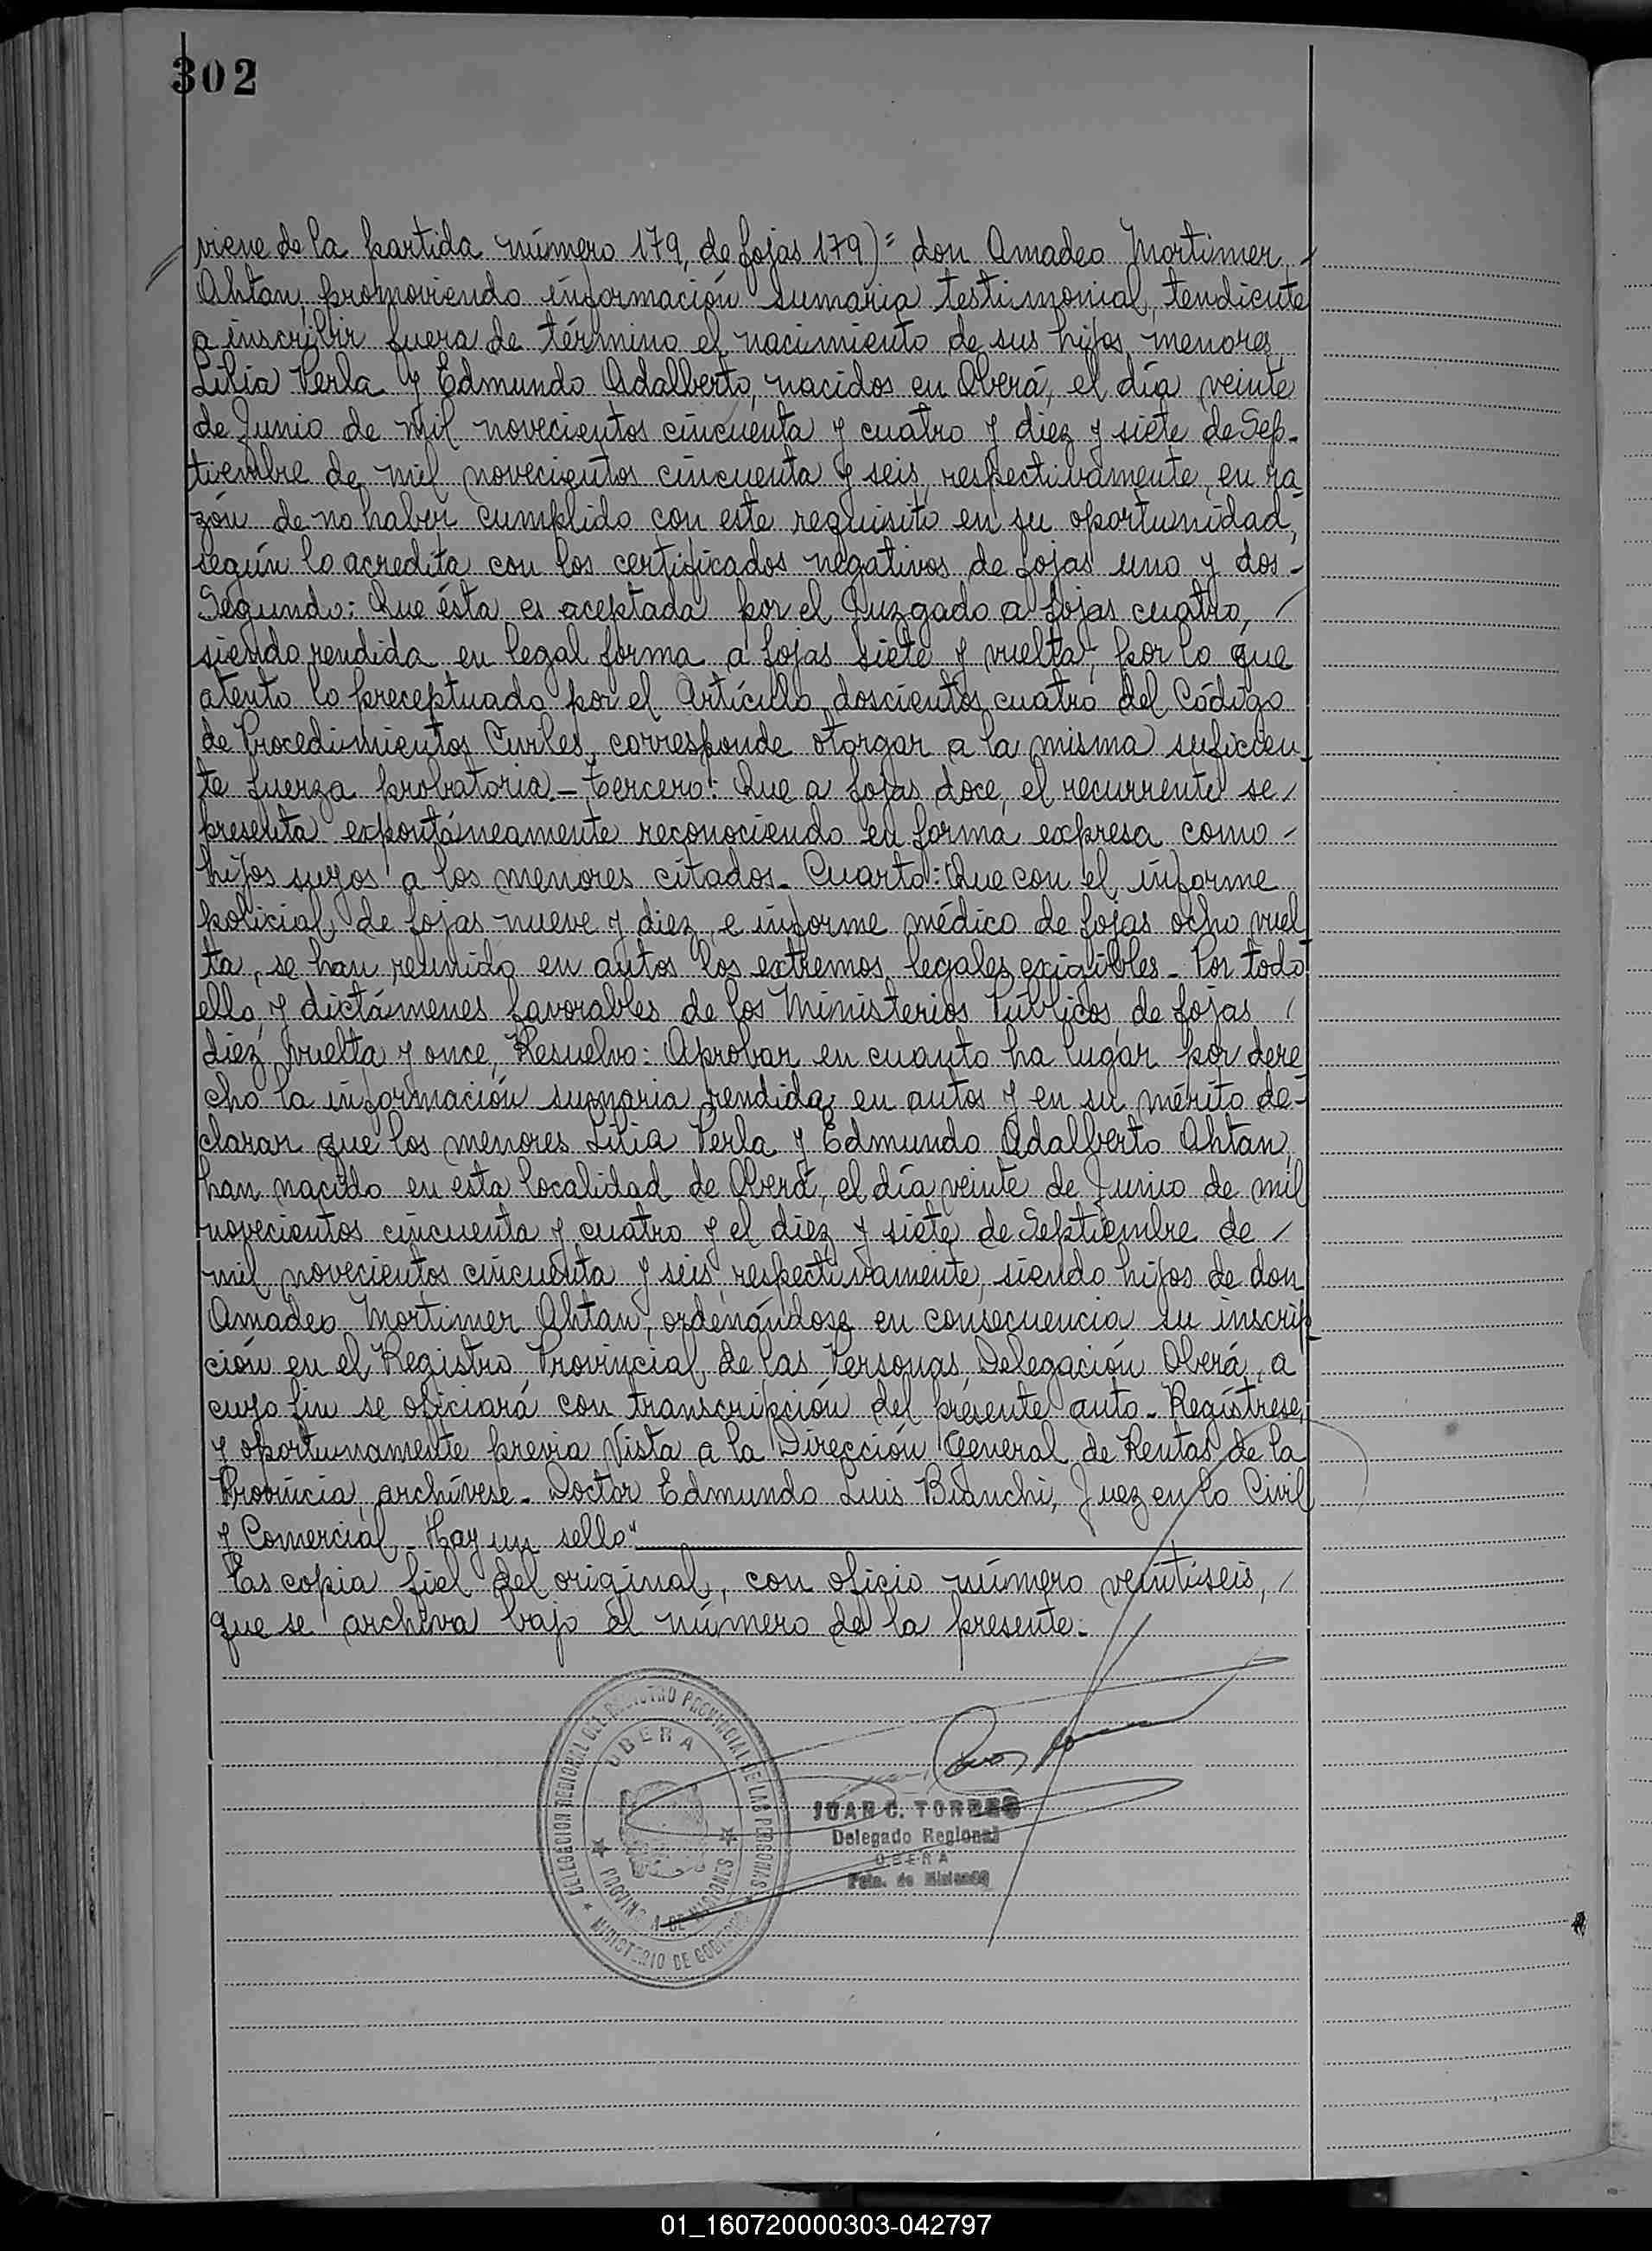 302
viene de la partida número 179, de fojas 179)= don Amadeo Mortimer
Ahtan, promoviendo información sumaria testimonial, tendiente
a inscribir fuera de término el nacimiento de sus hijos menores,
Lilia Perla y Edmundo Adalberto, nacidos en Oberá, el día veinte
de Junio de mil novecientos cincuenta y cuatro y diez y siete de Sep-
tiembre de mil novecientos cincuenta y seis, respectivamente, en ra-
zón de no haber cumplido con este requisito en su oportunidad,
según lo acredita con los certificados negativos de fojas uno y dos-
Segundo: Que ésta es aceptada por el Juzgado a fojas cuatro,
siendo rendida en legal forma a fojas siete y vuelta, por lo que
atento lo preceptuado por el Artículo doscientos cuatro del Código
de Procedimientos Civiles, corresponde otorgar a la misma suficien-
te fuerza probatoria.- Tercero: Que a fojas doce, el recurrente se
presenta expontáneamente reconociendo en forma expresa como
hijos suyos a los menores citados- Cuarto: Que con el informe
policial de fojas nueve y diez, e informe médico de fojas ocho vuel-
ta, se han reunido en autos los extremos legales exigibles- Por todo
ello, y dictámenes favorables de los Ministerios Públicos, de fojas
diez vuelta y once, Resuelvo: Aprobar en cuanto ha lugar por dere-
cho la información sumaria rendida en autos y en su mérito de-
clarar que los menores Lilia Perla y Edmundo Adalberto Ahtan,
han nacido en esta localidad de Oberá, el día veinte de Junio de mil
novecientos cincuenta y cuatro y el diez y siete de Septiembre de
mil novecientos cincuenta y seis, respectivamente, siendo hijos de don
Amadeo Mortimer Ahtan, ordenándose en consecuencia su inscrip-
ción en el Registro Provincial de las Personas, Delegación Oberá, a
cuyo fin se oficiará con transcripción del presente auto- Regístrese,
y oportunamente previa Vista a la Dirección General de Rentas de la
Provincia, archívese- Doctor Edmundo Luis Bianchi, Juez en lo Civil
y Comercial.- Hay un sello"
Es copia fiel del original, con oficio número veintiseis,
que se archiva bajo el número de la presente.-
DELEGACION REGIONAL DEL REGISTRO PROVINCIAL DE LAS PERSONAS
OBERA
PROVINCIA DE MISIONES
MINISTERIO DE GOBIERNO
JUAN C. TORRES
Delegado Regional
OBERA
Pcia. de Misiones
01_160720000303-042797